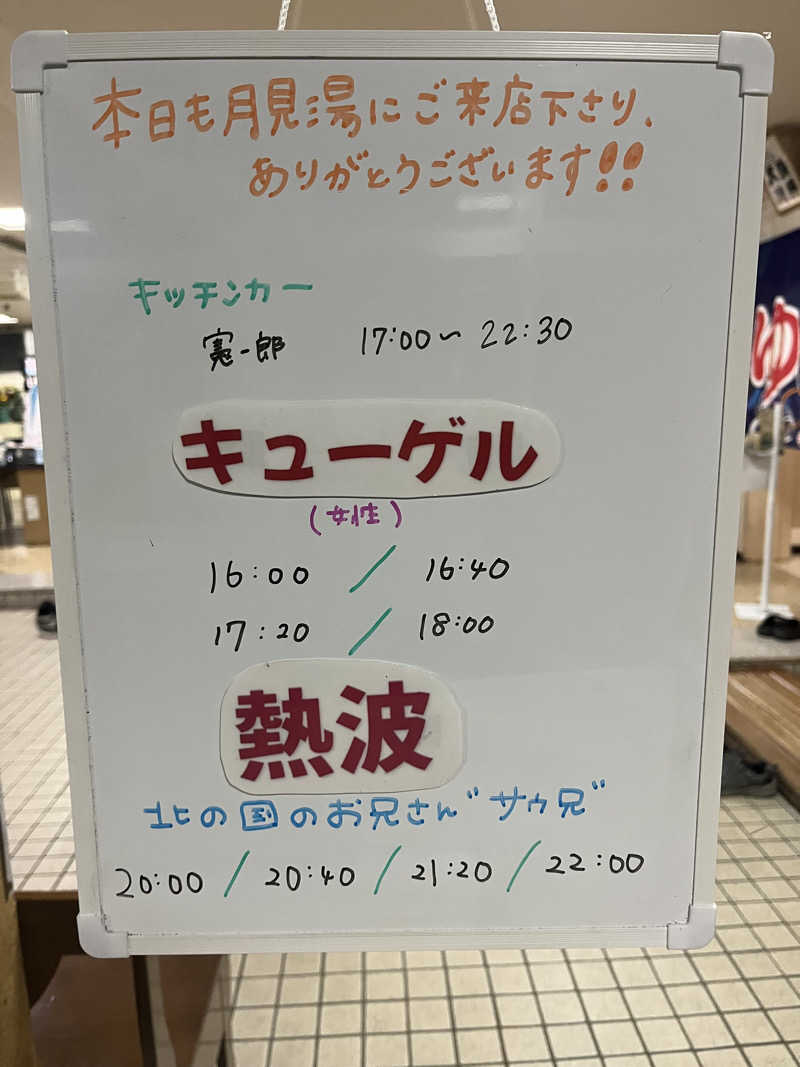 本日も月見湯にご来店下さり、
ありがとうございます!!
キッチンカー
憲一郎 17:00〜22:30
キューゲル
(女性)
16:00 / 16:40
17:20 / 18:00
熱波
北の国のお兄さん"サウ兄"
20:00 / 20:40 / 21:20 / 22:00
ゆ